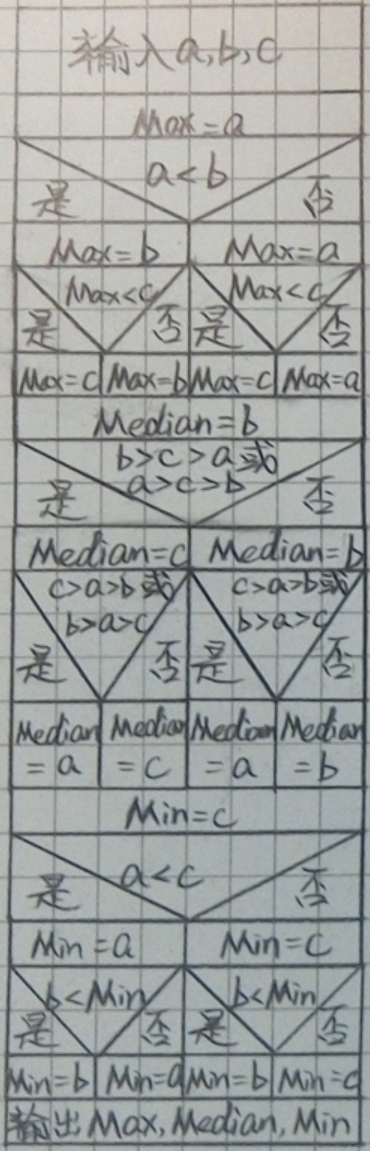 输入a,b,c
Max=a
a<b
是 否
Max=b Max=a
Max<c Max<c
是 否 是 否
Max=c Max=b Max=c Max=a
Median=b
b>c>a或
a>c>b
是 否
Median=c Median=b
c>a>b或 c>a>b或
b>a>c b>a>c
是 否 是 否
Median Median Median Median
=a =c =a =b
Min=c
a<c
是 否
Min=a Min=c
b<Min b<Min
是 否 是 否
Min=b Min=a Min=b Min=c
输出Max,Median,Min